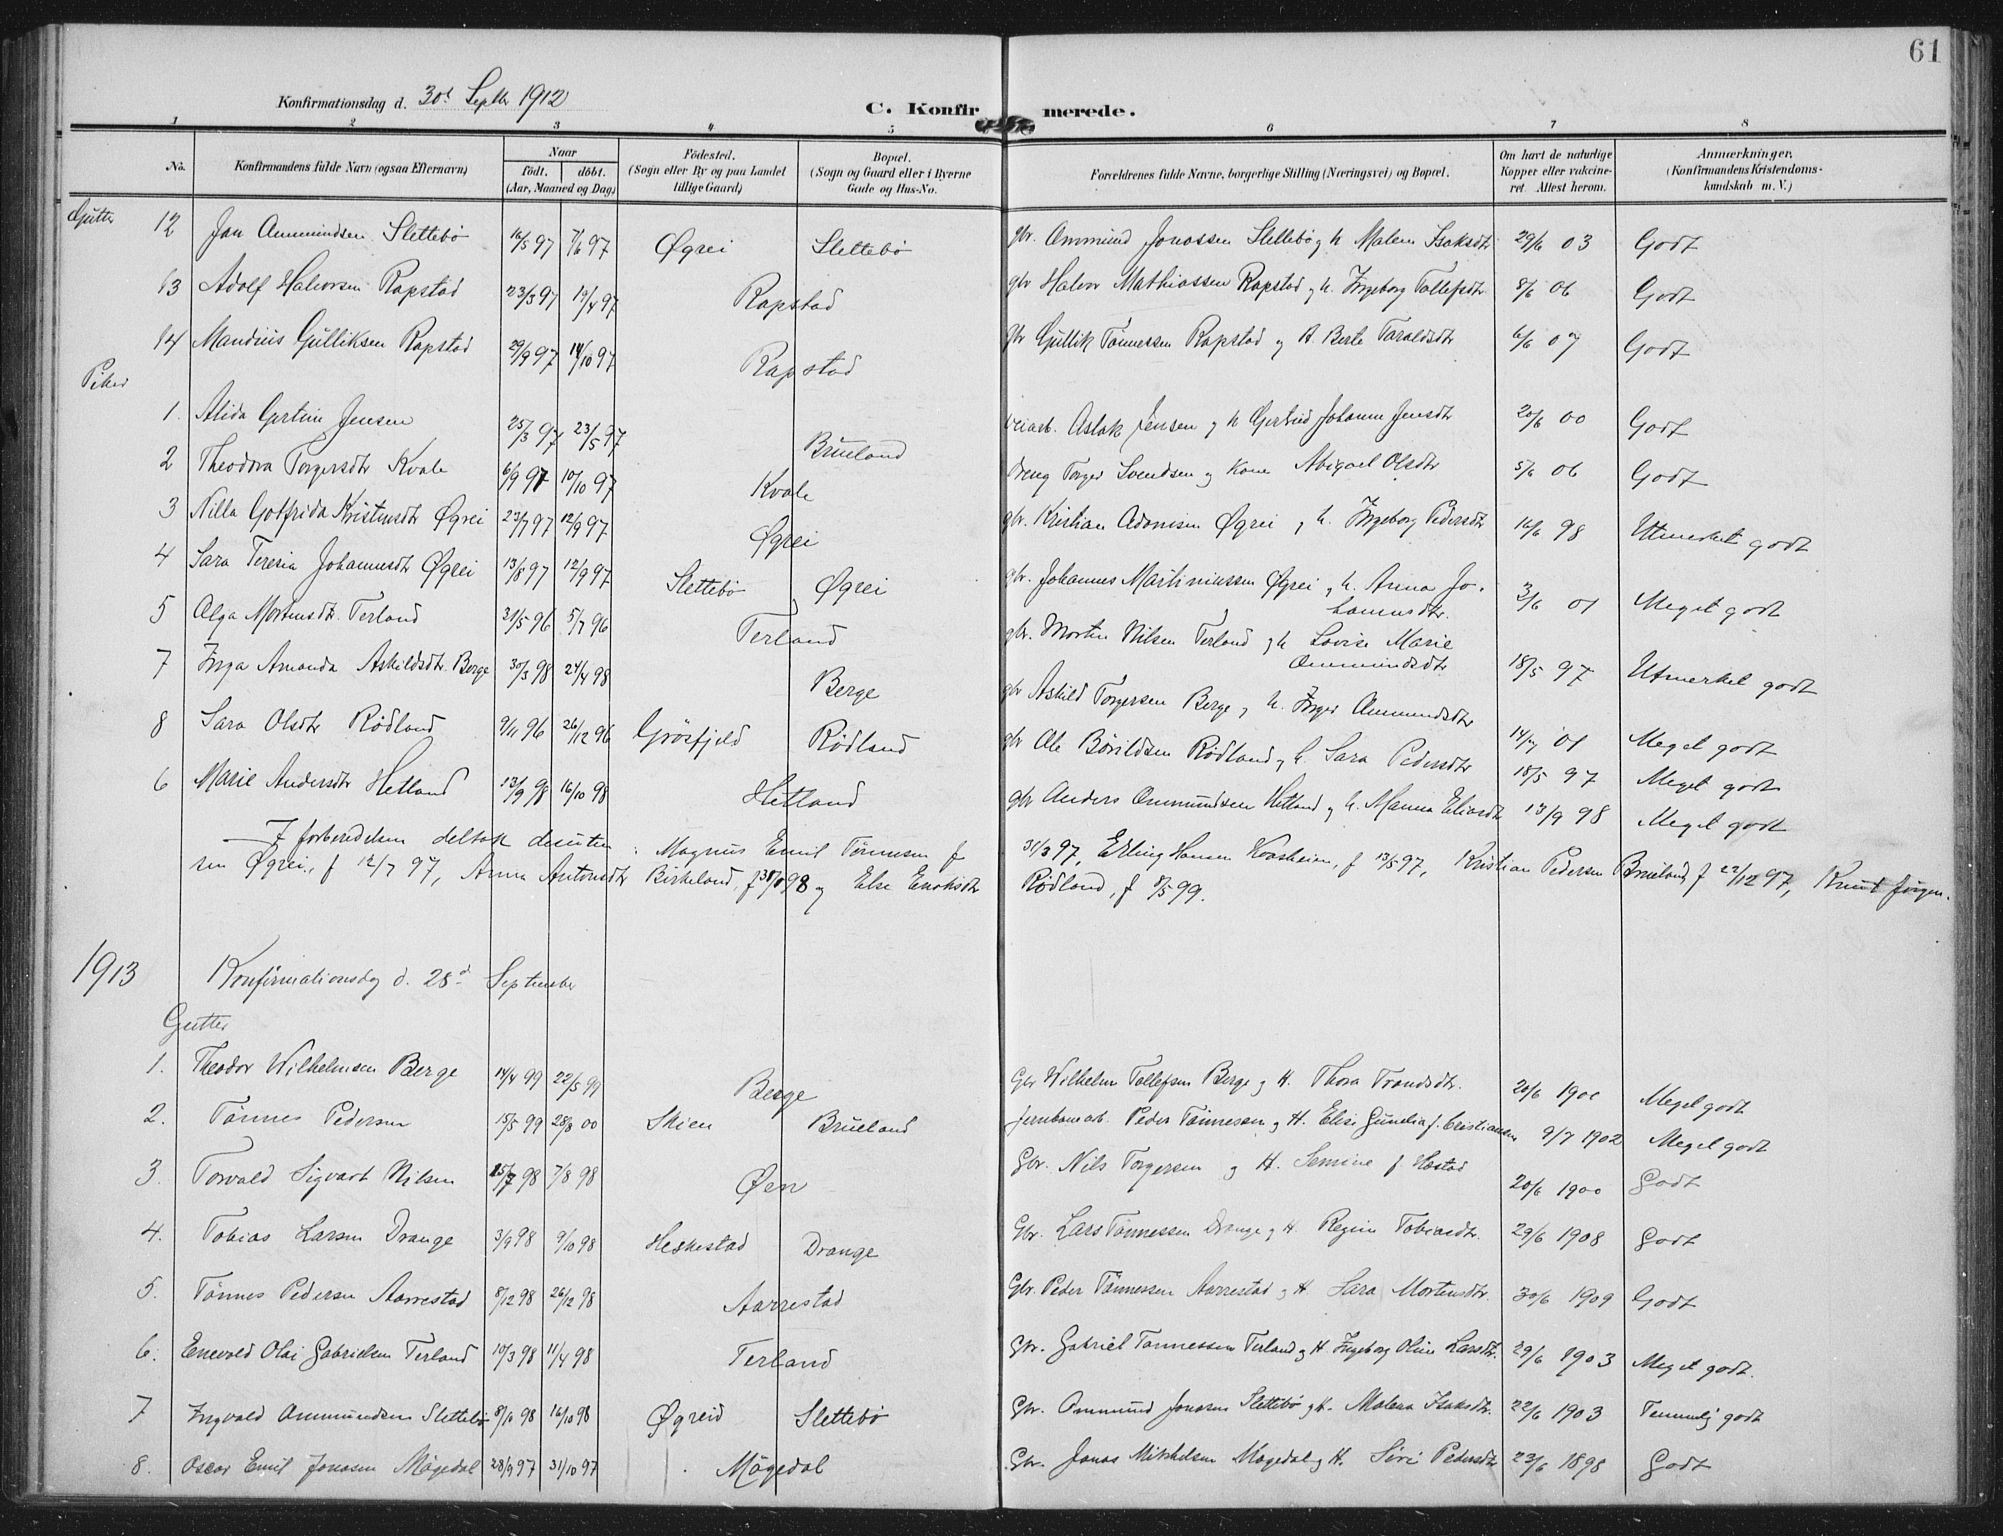 61
Konfirmationsdag d. 30d Septbr 1912
C. Konfirmerede.
1 2 3 4 5 6 7 8
No. Konfirmandens fulde Navn (ogsaa Efternavn) Naar født. døbt. (Aar, Maaned og Dag) Fødested. (Sogn eller By og paa Landet tillige Gaard) Bopæl. (Sogn og Gaard eller i Byerne Gade og Hus-No. Forældrenes fulde Navne, borgerlige Stilling (Næringsvei) og Bopæl. Om havt de naturlige Kopper eller vaccineret. Attest herom. Anmærkninger, (Konfirmandens Kristendomskundskab m. V.)
Gutter
12 Jan Ammundsen Slettebø 16/5 97 7/6 97 Øgrei Slettebø gbr. Ommund Jonassen Slettebø og h Malene Isaksdtr 29/6 03 Godt
13 Adolf Halvorsen Rapstad 23/3 97 19/4 97 Rapstad gbr Halvor Mathiassen Rapstad og h. Ingeborg Tollefsdtr 8/6 06 Godt
14 Mandius Gulliksen Rapstad 29/9 97 14/10 97 Rapstad gbr Gullik Tønnessen Rapstad og h. Berte Taraldsdtr 6/6 07 Godt
Piker
1. Alida Gertine Jensen 25/3 97 23/5 97 Brueland veiarb. Aslak Jensen og h Gertrud Johanne Jensdtr 20/6 00 Godt
2 Theodora Torgersdtr Kvale 6/9 97 10/10 97 Kvale Dreng Torger Svendsen og Kone Abigael Olsdtr 5/6 06 Godt
3 Nilla Gotfrida Kristensdtr Øgrei 23/7 97 12/9 97 Øgrei gbr. Kristian Adamsen Øgrei og h. Ingeborg Pedersdtr 16/6 98 Utmerket godt
4 Sara Teresia Johannesdtr Øgrei 13/8 97 12/9 97 Slettebø Øgrei gbr. Johannes Martiniussen Øgrei og h. Anna Johannesdtr. 3/6 01 Meget godt
5 Olga Mortensdtr. Terland 31/5 96 5/7 96 Terland gbr. Morten Nilsen Terland og h Lovise Marie Ommundsdtr 18/5 97 Utmerket godt
7 Inga Amanda Askildsdtr. Berge 30/3 98 24/4 98 Berge gbr Askild Torgersen Berge og h. Inger Ommundsdtr 14/7 01 Meget godt
8 Sara Olsdtr Rødland 9/11 96 26/12 96 Grøsfjeld Rødland gbr Ole Bårildsen Rødland og h. Sara Pedersdtr 18/5 97 Meget godt
6 Marie Andersdtr Hetland 13/9 98 16/10 98 Hetland gbr Anders Ommundsen Hetland og h. Manna Eliasdtr 13/9 98 Meget godt
I forberedelsen deltok desuten: Magnus Emil Tønnesen f 31/3 97, Erling Hansen Kvasheim, f 13/5 97, Kristian Pedersen Brueland f 22/12 97, Knut Jørgen-
sen Øgrei, f 12/7 97, Anna Antonsdtr Birkeland, f 98 og Else Enoksdtr Rødland, f 8/5 99.
1913 Konfirmationsdag d. 28d September
Gutter
1. Theodor Wilhelmsen Berge 14/4 99 22/5 99 Berge Gbr Wilhelm Tollefsen Berge og H. Thora Trondsdtr. 20/6 1900 Meget godt
2. Tønnes Pedersen 15/5 99 28/8 00 Skien Brueland Jernbanearb. Peder Tønnessen og H. Elise Gunelia f. Cristiansen 9/7 1902 Meget godt
3. Torvald Sigvart Nilsen 15/7 98 7/8 98 Øen Gbr. Nils Torgersen og H. Semine f. Hæstad 20/6 1900 Godt
4. Tobias Larsen Drange 3/9 98 9/10 98 Heskestad Drange Gbr. Lars Tønnessen Drange og H. Regine Tobiasdtr. 29/6 1908 Godt
5. Tønnes Pedersen Aarrestad 8/12 98 26/12 98 Aarrestad Gbr. Peder Tønnessen Aarrestad og H Sara Mortensdtr. 30/6 1909 Godt
6. Enevald Olai Gabrielsen Terland 10/3 98 11/4 98 Terland Gbr. Gabriel Tønnessen Terland og H Ingeborg Oline Larsdtr. 29/6 1903 Meget godt.
7 Ingvald Ommundsen Slettebø 98 16/10 98 Øgreid Slettebø Gbr. Ommund Jonasen Slettebø og H. Malena Isaksdtr. 22/6 1903 Temmelig godt
8. Oscar Emil Jonasen Mögedal 28/9 97 31/10 97 Mögedal Gbr. Jonas Mikkelsen Mögedal og H. Siri Pedersdtr 23/6 1898 Godt